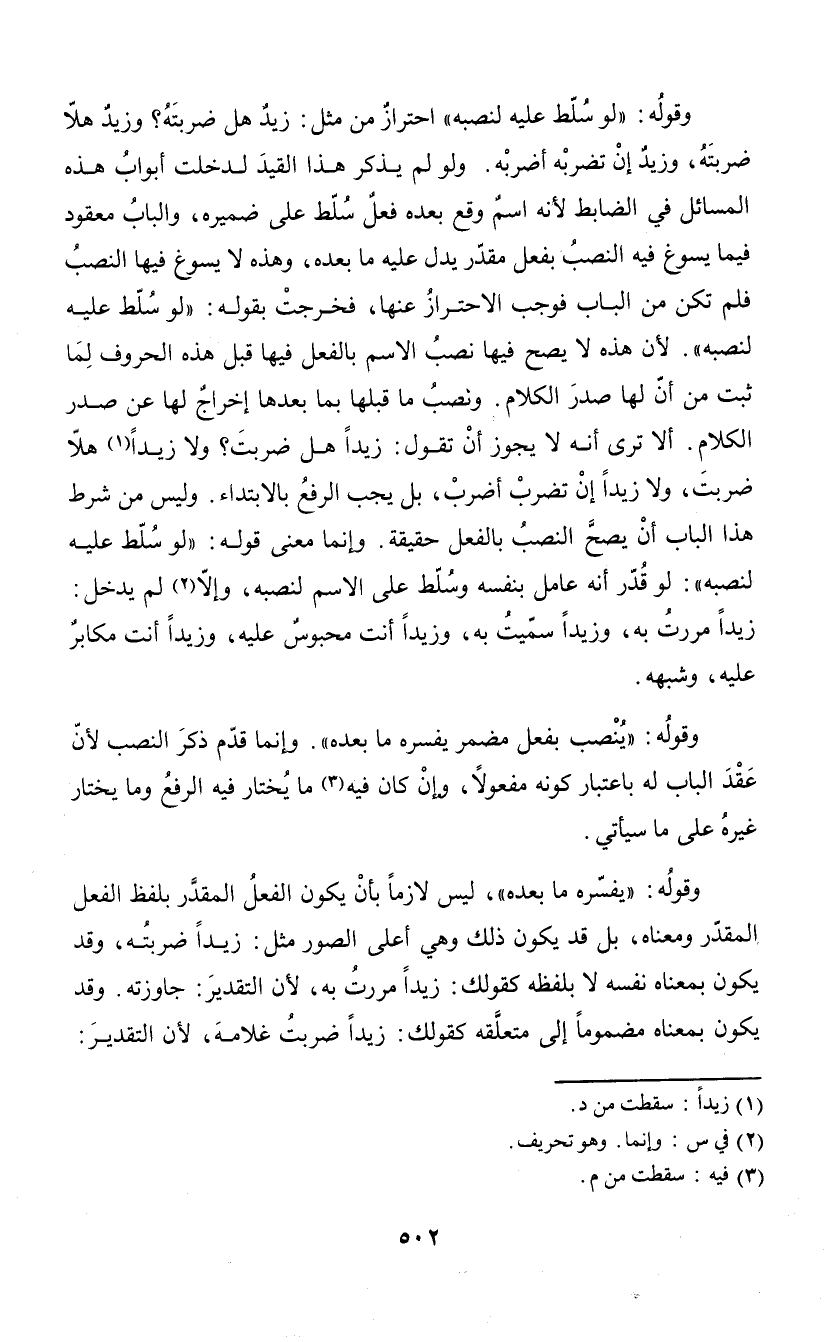 وقولُه: «لو سُلّط عليه لنصبه» احترازٌ من مثل: زيدٌ هل ضربتَهُ؟ وزيدٌ هلّا
ضربتَهُ، وزيدٌ إنْ تضربْه أضربْه. ولو لم يذكر هذا القيدَ لدخلت أبوابُ هذه
المسائل في الضابط لأنه اسمٌ وقع بعده فعلٌ سُلّط على ضميره، والبابُ معقود
فيما يسوغ فيه النصبُ بفعل مقدّر يدل عليه ما بعده، وهذه لا يسوغ فيها النصبُ
فلم تكن من الباب فوجب الاحترازُ عنها، فخرجتْ بقوله: «لو سُلّط عليه
لنصبه». لأن هذه لا يصح فيها نصبُ الاسم بالفعل فيها قبل هذه الحروف لِمَا
ثبت من أنّ لها صدرَ الكلام. ونصبُ ما قبلها بما بعدها إخراجٌ لها عن صدر
الكلام. ألا ترى أنه لا يجوز أنْ تقول: زيداً هل ضربتَ؟ ولا زيداً(١) هلّا
ضربتَ، ولا زيداً إنْ تضربْ أضربْ، بل يجب الرفعُ بالابتداء. وليس من شرط
هذا الباب أنْ يصحَّ النصبُ بالفعل حقيقة. وإنما معنى قوله: «لو سُلّط عليه
لنصبه»: لو قُدّر أنه عامل بنفسه وسُلّط على الاسم لنصبه، وإلّا(٢) لم يدخل:
زيداً مررتُ به، وزيداً سمّيتُ به، وزيداً أنت محبوسٌ عليه، وزيداً أنت مكابرٌ
عليه، وشبهه.
وقولُه: «يُنْصب بفعل مضمر يفسره ما بعده». وإنما قدّم ذكرَ النصب لأنّ
عَقْدَ الباب له باعتبار كونه مفعولاً، وإنْ كان فيه(٣) ما يُختار فيه الرفعُ وما يختار
غيرهُ على ما سيأتي.
وقولُه: «يفسّره ما بعده»، ليس لازماً بأنْ يكون الفعلُ المقدَّر بلفظ الفعل
المقدّر ومعناه، بل قد يكون ذلك وهي أعلى الصور مثل: زيداً ضربتُه، وقد
يكون بمعناه نفسه لا بلفظه كقولك: زيداً مررتُ به، لأن التقديرَ: جاوزته. وقد
يكون بمعناه مضموماً إلى متعلَّقه كقولك: زيداً ضربتُ غلامهَ، لأن التقديرَ:
(١) زيداً : سقطت من د.
(٢) في س : وإنما. وهو تحريف.
(٣) فيه : سقطت من م.
٥٠٢